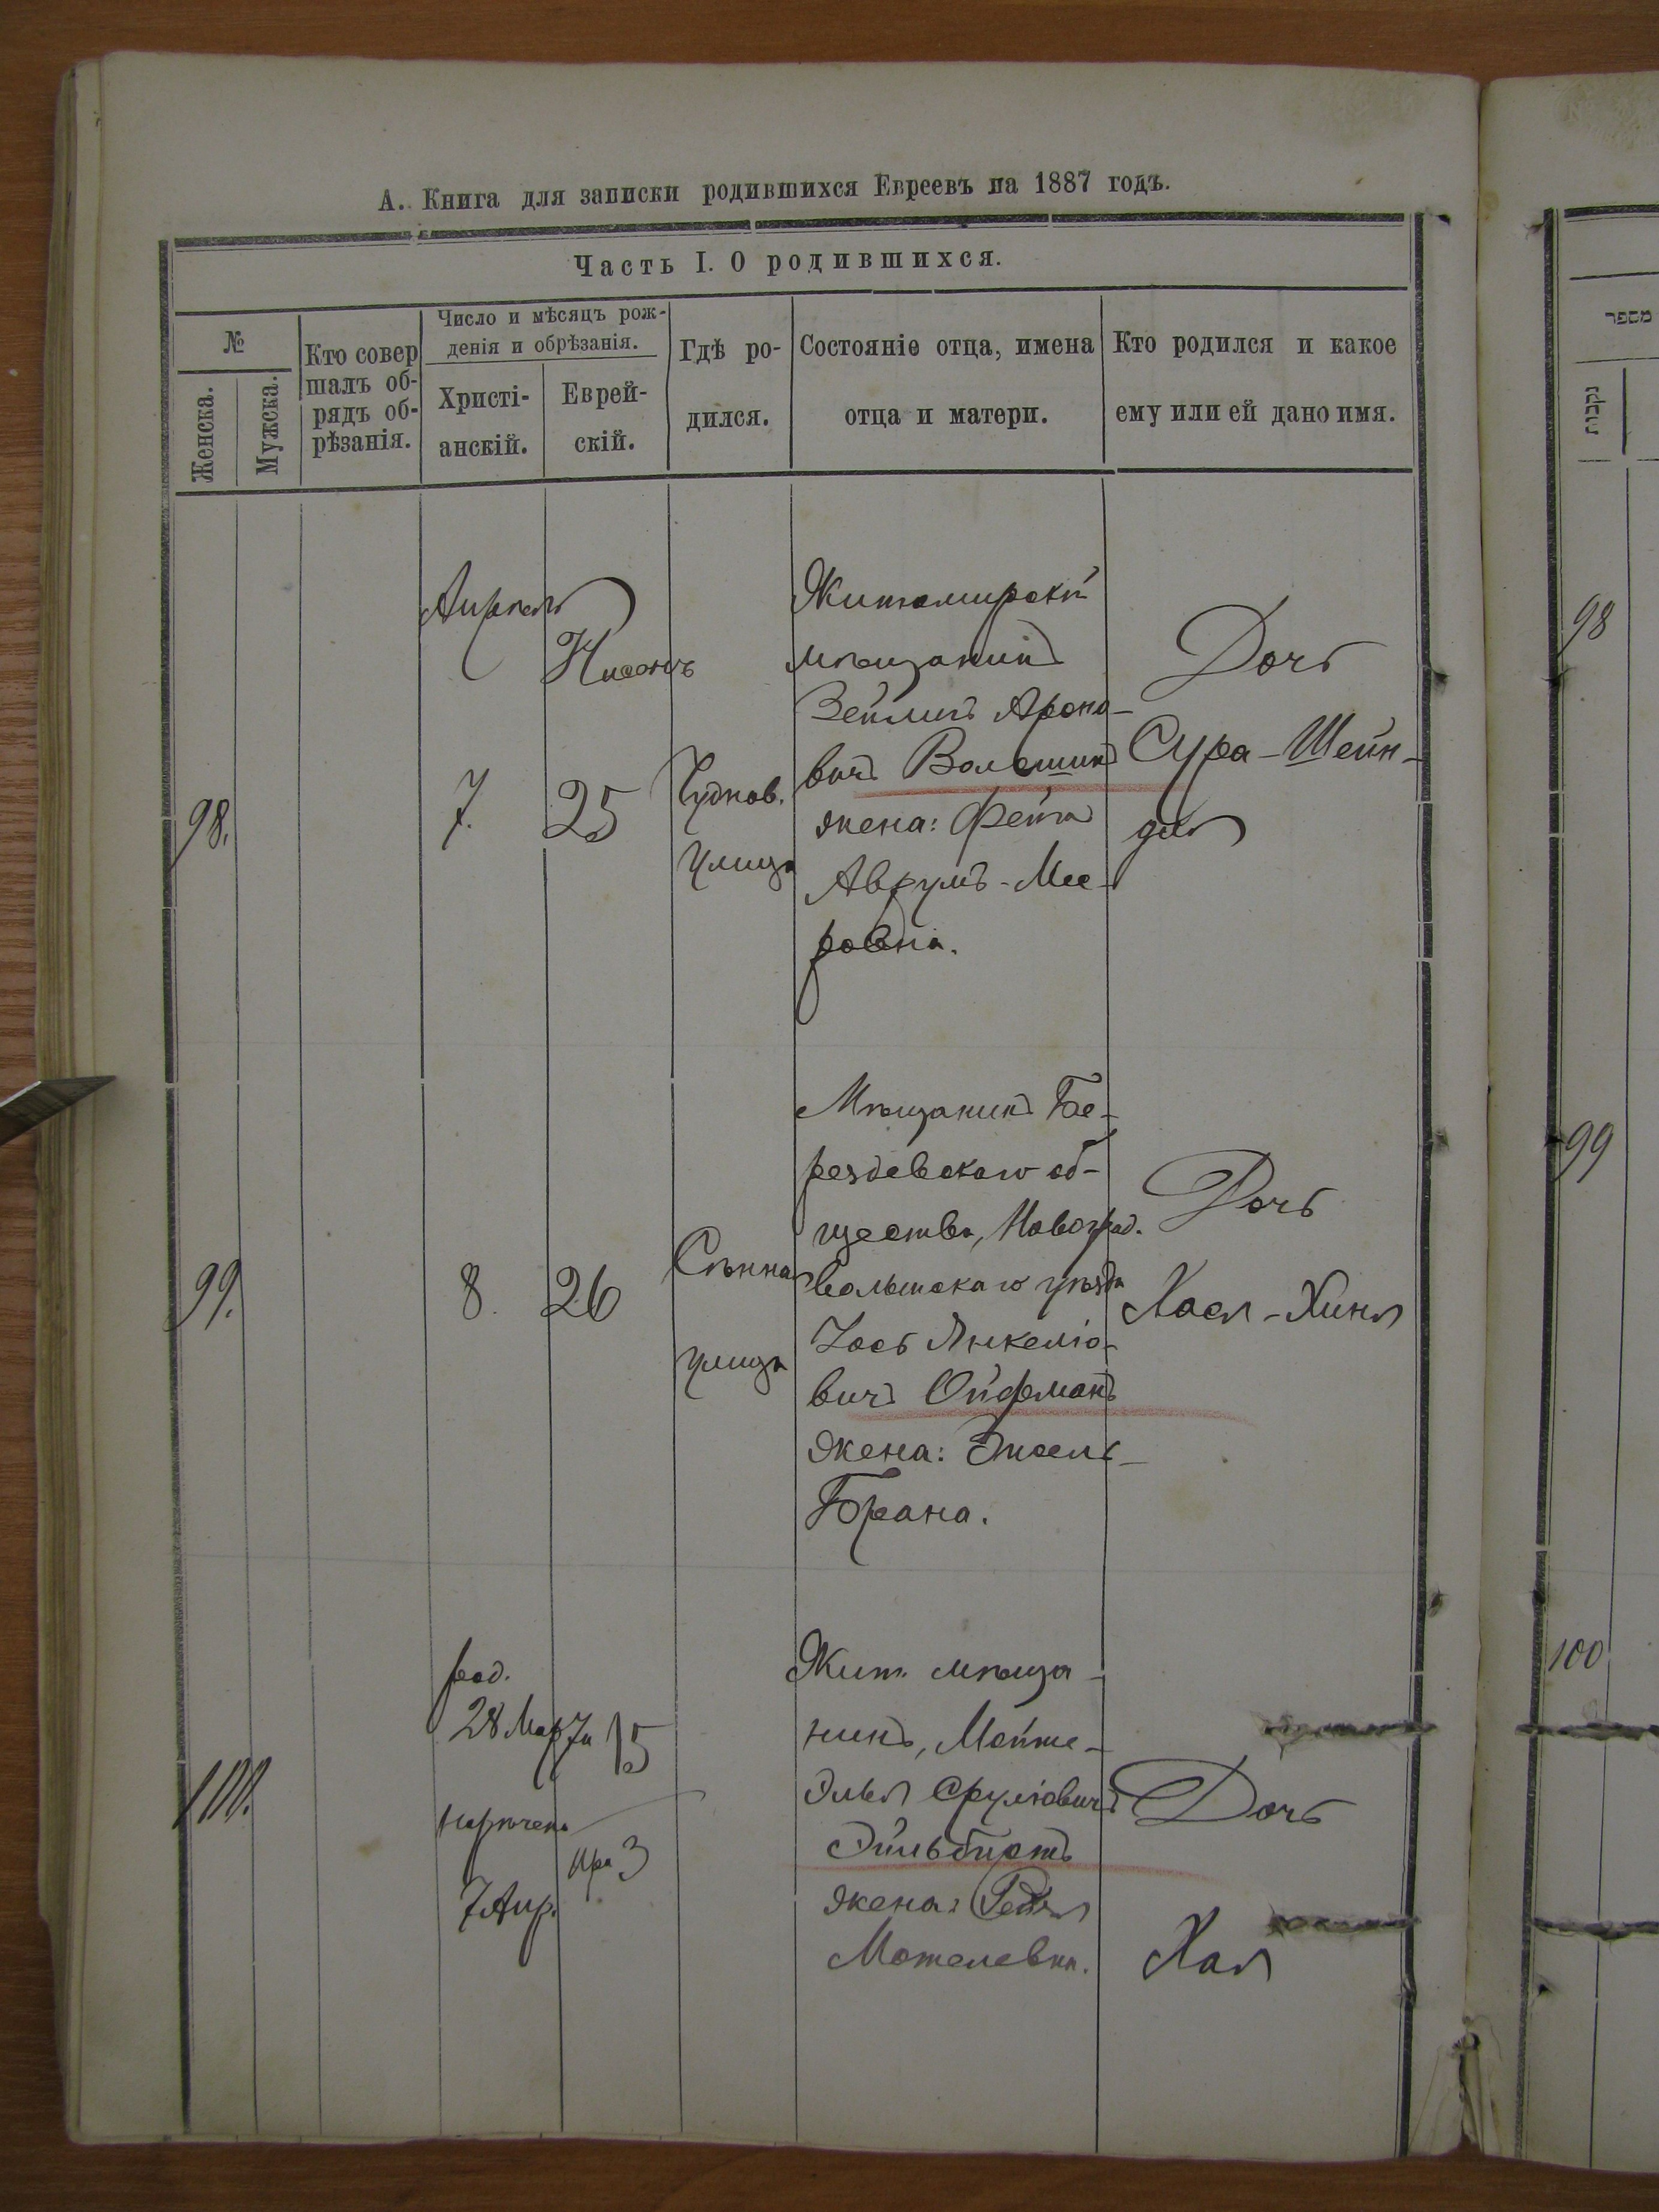 А. Книга для записки родившихся Евреевъ на 1887 годъ.
Часть I. О родившихся.
№
Женска.
Мужска.
Кто совер
шалъ об-
рядъ об-
рѣзанія.
Число и мѣсяцъ рож-
денія и обрѣзанія.
Христі-
анскій.
Еврей-
скій.
Гдѣ ро-
дился.
Состояніе отца, имена
отца и матери.
Кто родился и какое
ему или ей дано имя.
98.
Апрель
7.
Нисонъ
25
Чуднов.
улица
Житомирскій
мѣщанинъ
Зейлигъ Ароно-
вичъ
жена: Фейга
Аврумъ-Мее-
ровна.
Дочь
Сура-Шейн-
для
99.
8.
26
Сѣнная
улица
Мѣщанинъ Бе-
рездевскаго об-
щества, Новоград.
волынскаго уѣзда
Іось Янкеліо-
вичъ Ойфманъ
жена:
Дочь
Хася-Хиня
100.
род.
28 Марта
наречена
7 Апр.
15
3
Жит. мѣща-
нинъ, Мойше-
Эля Сруліовичъ
жена:
Мотелевна.
Дочь
Хая
מספר
נקבות
98
99
100